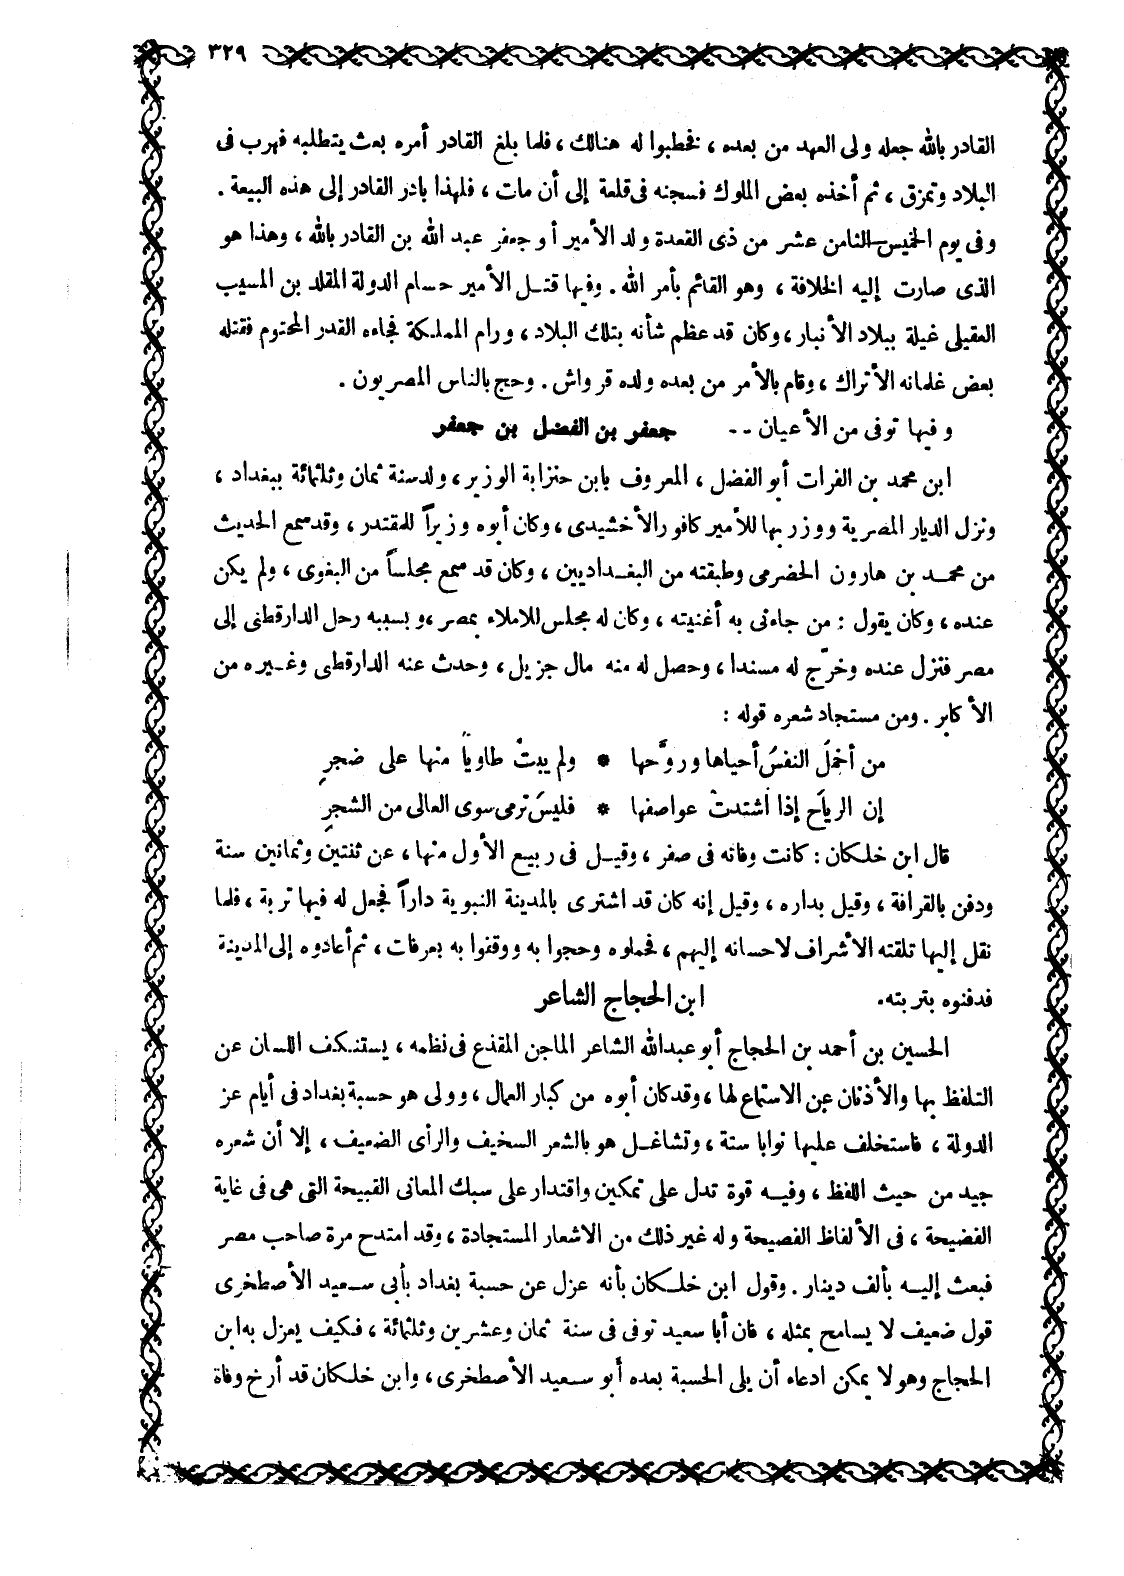 ٣٢٩
القادر بالله جعله ولى العهد من بعده ، فخطبوا له هنالك ، فلما بلغ القادر أمره بعث يتطلبه فهرب فى
البلاد وتمزق ، ثم أخذه بعض الملوك فسجنه فى قلعة إلى أن مات ، فلهذا بادر القادر إلى هذه البيعة .
وفى يوم الخميس الثامن عشر من ذى القعدة ولد الأمير أبو جعفر عبد الله بن القادر بالله ، وهذا هو
الذى صارت إليه الخلافة ، وهو القائم بأمر الله . وفيها قتل الأمير حسام الدولة المقلد بن المسيب
العقيلى غيلة ببلاد الأنبار ، وكان قد عظم شأنه بتلك البلاد ، ورام المملكة فجاءه القدر المحتوم فقتله
بعض غلمانه الأتراك ، وقام بالأمر من بعده ولده قرواش . وحج بالناس المصريون .
وفيها توفى من الأعيان -- جعفر بن الفضل بن جعفر
ابن محمد بن الفرات أبو الفضل ، المعروف بابن حنزابة الوزير ، ولد سنة ثمان وثلثمائة ببغداد ،
ونزل الديار المصرية ووزر بها للأمير كافور الأخشيدى ، وكان أبوه وزيراً للمقتدر ، وقد سمع الحديث
من محمد بن هارون الحضرمى وطبقته من البغداديين ، وكان قد سمع مجلساً من البغوى ، ولم يكن
عنده ، وكان يقول : من جاءنى به أغنيته ، وكان له مجلس للاملاء بمصر ، وبسببه رحل الدارقطنى إلى
مصر فنزل عنده وخرّج له مسندا ، وحصل له منه مال جزيل ، وحدث عنه الدارقطنى وغيره من
الأكابر . ومن مستجاد شعره قوله :
من أخمَلَ النفسَ أحياها وروَّحها * ولم يبتْ طاوياً منها على ضجرِ
إن الرياَح إذا اشتدتْ عواصفها * فليسَ ترمى سوى العالى من الشجرِ
قال ابن خلكان : كانت وفاته فى صفر ، وقيل فى ربيع الأول منها ، عن ثنتين وثمانين سنة
ودفن بالقرافة ، وقيل بداره ، وقيل إنه كان قد اشترى بالمدينة النبوية داراً فجعل له فيها تربة ، فلما
نقل إليها تلقته الأشراف لاحسانه إليهم ، فحملوه وحجوا به ووقفوا به بعرفات ، ثم أعادوه إلى المدينة
فدفنوه بتربته . ابن الحجاج الشاعر
الحسين بن أحمد بن الحجاج أبو عبدالله الشاعر الماجن المقذع فى نظمه ، يستنكف اللسان عن
التلفظ بها والأذنان عن الاستماع لها ، وقد كان أبوه من كبار العمال ، وولى هو حسبة بغداد فى أيام عز
الدولة ، فاستخلف عليها نوابا ستة ، وتشاغل هو بالشعر السخيف والرأى الضعيف ، إلا أن شعره
جيد من حيث اللفظ ، وفيه قوة تدل على تمكين واقتدار على سبك المعانى القبيحة التى هى فى غاية
الفضيحة ، فى الألفاظ الفصيحة وله غير ذلك من الاشعار المستجادة ، وقد امتدح مرة صاحب مصر
فبعث إليه بألف دينار . وقول ابن خلكان بأنه عزل عن حسبة بغداد بأبى سعيد الأصطخرى
قول ضعيف لا يسامح بمثله ، فان أبا سعيد توفى فى سنة ثمان وعشرين وثلثمائة ، فكيف يعزل به ابن
الحجاج وهو لا يمكن ادعاء أن يلى الحسبة بعده أبو سعيد الأصطخرى ، وابن خلكان قد أرخ وفاة